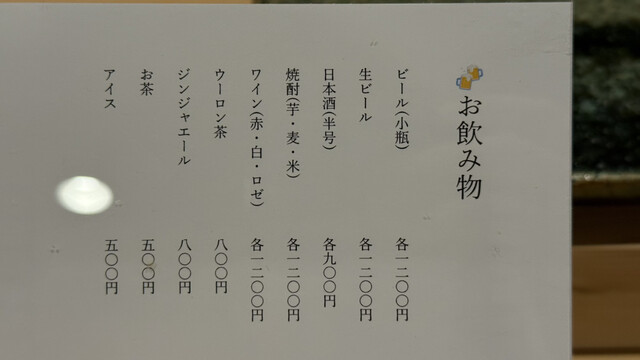 お飲み物
ビール(小瓶) 各一二〇〇円
生ビール 各一二〇〇円
日本酒(半号) 各九〇〇円
焼酎(芋・麦・米) 各一二〇〇円
ワイン(赤・白・ロゼ) 各一二〇〇円
ウーロン茶 八〇〇円
ジンジャエール 八〇〇円
お茶 五〇〇円
アイス 五〇〇円